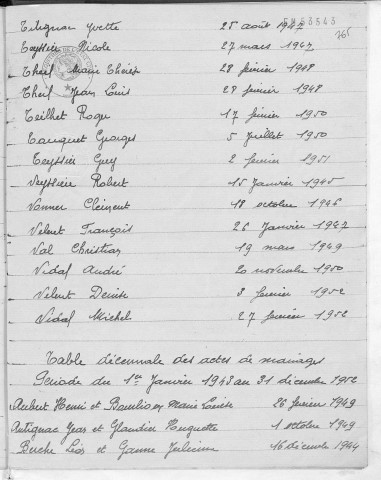 Tilignac Yvette 25 août 1947
Teyssier Nicole 27 mars 1947
Theil Marie Thérèse 28 février 1948
Theil Jean Louis 28 février 1948
Teilhet Roger 17 février 1950
Tauquet Georges 5 Juillet 1950
Teyssier Guy 2 février 1951
Veyssière Robert 15 Janvier 1945
Vanner Clément 18 octobre 1946
Velut François 26 Janvier 1947
Val Christian 19 mars 1949
Vidal André 20 novembre 1950
Velut Denise 3 février 1952
Vidal Michel 27 février 1952
Table décennale des actes de mariages
Periode du 1er Janvier 1943 au 31 décembre 1952
Aubert Henri et Marie Louise 26 février 1949
Antignac Jean et Glandier Huguette 1 octobre 1949
Berche Léos et Ganne 16 décembre 1944